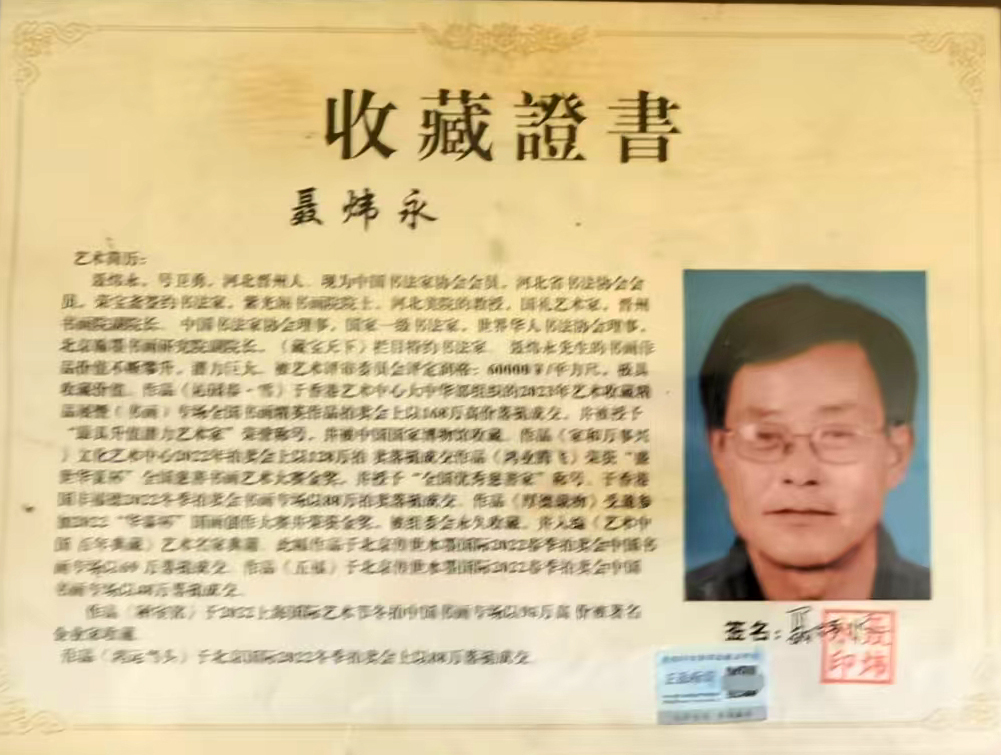 收藏證書
聂炜永
艺术简历：
聂炜永，号卫勇，河北晋州人，现为中国书法家协会会员，河北省书法协会会
员，荣宝斋签约书法家，紫光阁书画院院士，河北美院的教授，国礼艺术家，晋州
书画院副院长，中国书法家协会理事，国家一级书法家，世界华人书法协会理事，
北京翰墨书画研究院副院长，《藏宝天下》栏目特约书法家。聂炜永先生的书画作
品价值不断攀升，潜力巨大，被艺术评审委员会评定润格：60000￥/平方尺，极具
收藏价值。作品《沁园春·雪》于香港艺术中心大中华区组织的2023年艺术收藏精
品展暨（书画）专场全国书画精英作品拍卖会上以168万高价落槌成交，并被授予
“最具升值潜力艺术家”荣誉称号，并被中国国家博物馆收藏。作品《家和万事兴
》文化艺术中心2022年拍卖会上以128万拍 卖落槌成交作品《鸿业腾飞》荣获“盛
世华诞杯”全国慈善书画艺术大赛金奖，并授予“全国优秀慈善家”称号，于香港
2022冬季拍卖会书画专场以88万拍卖落槌成交。作品《厚德载物》受邀参
加2022“华 杯”国画创作大赛并荣获金奖，被组委会永久收藏，并入编《艺术中
国 百年典藏》艺术名家典籍，此幅作品于北京传世水墨国际2022春季拍卖会中国书
画专场以69 万落槌成交。作品《五福》于北京传世水墨国际2022春季拍卖会中国
书画专场以 万落槌成交。
作品《 》于2022上海国际艺术节冬拍中国书画专场以98万高价被著名
企业家收藏。
作品《鸿运当头》于北京国际2022冬季拍卖会上以88万落槌成交。
签名：
聂炜永印
正品标识